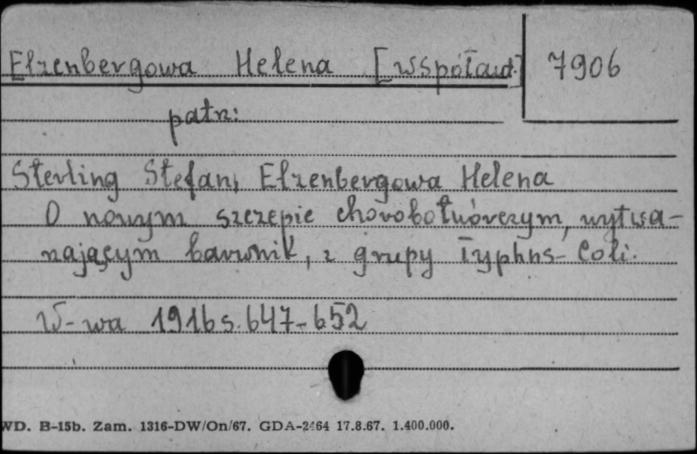 Elzenbergowa Helena [współaut.] 7906
patrz:
Sterling Stefan, Elzenbergowa Helena
O nowym szczepie chorobotwórczym, wytwa-
rzającym barwnik, z grupy Typhus-Coli.
W-wa 1916 s. 647-652
WD. B-15b. Zam. 1316-DW/On/67. GDA-2464 17.8.67. 1.400.000.